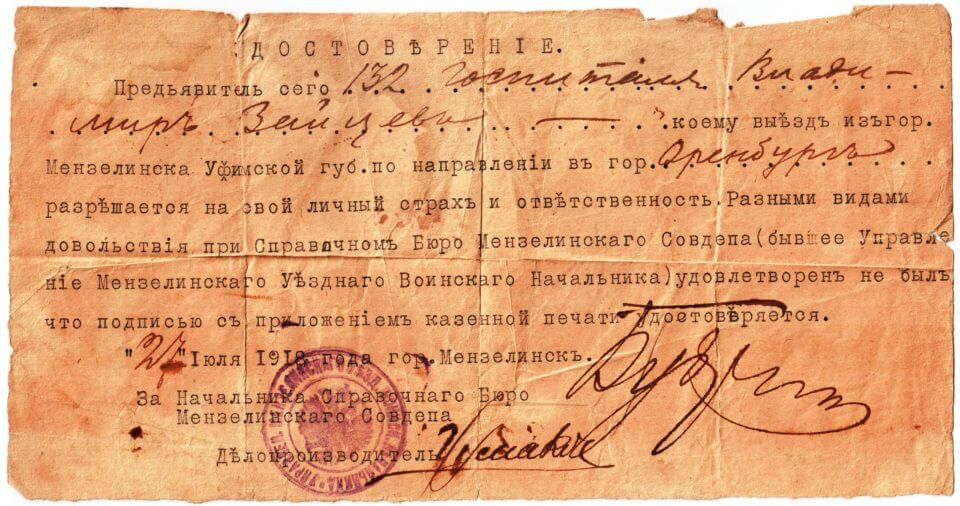 ДОСТОВѢРЕНІЕ.
Предьявитель сего 132 госпиталя Влади-
миръ Зайцевъ коему выѣздъ изъгор.
Мензелинска Уфимской губ.по направленіи въ гор.Оренбургъ
разрѣшается на свой личный страхъ и отвѣтственность.Разными видами
довольствія при Справочномъ Бюро Мензелинскаго Совдепа(бывшее Управле
ніе Мензелинскаго Уѣзднаго Воинскаго Начальника)удовлетворенъ не былъ,
что подписью съ приложеніемъ казенной печати удостовѣряется.
"27"Іюля 1918 года гор.Мензелинскъ.
За Начальника Справочнаго Бюро
Мензелинскаго Совдепа
Дѣлопроизводитель